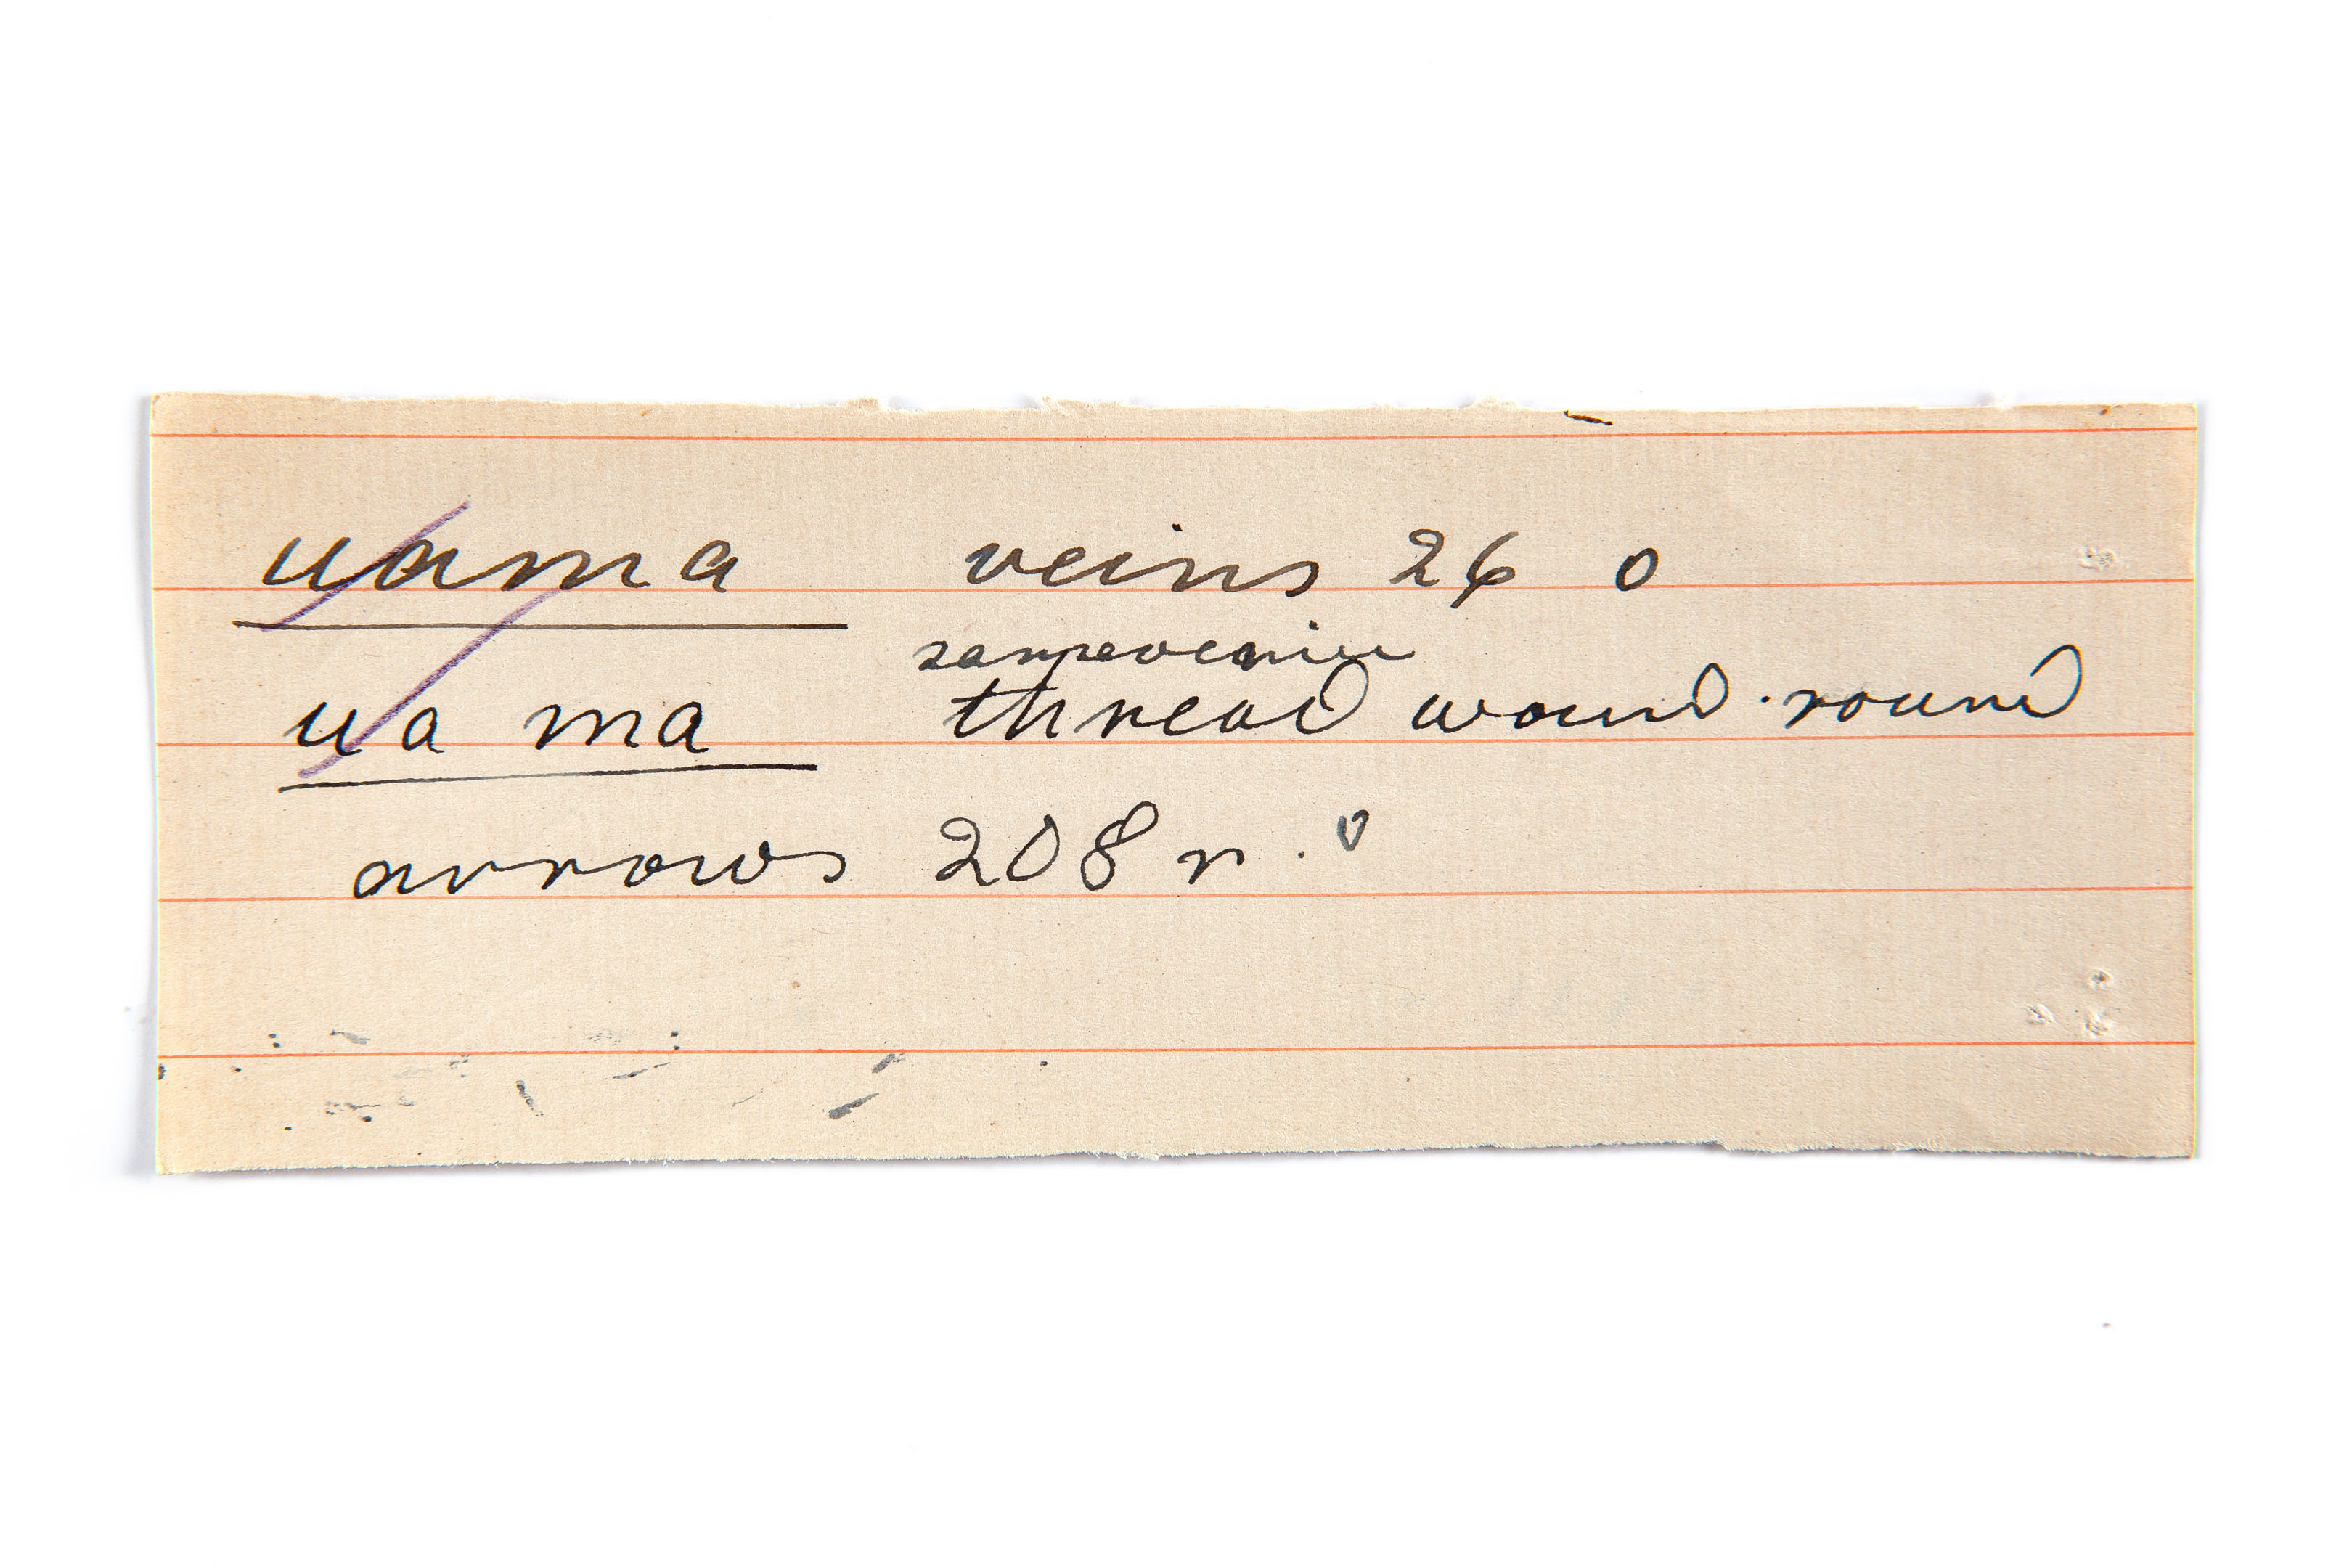 uama veins 26 o
ua ma thread wound round
arrows 208 r. v